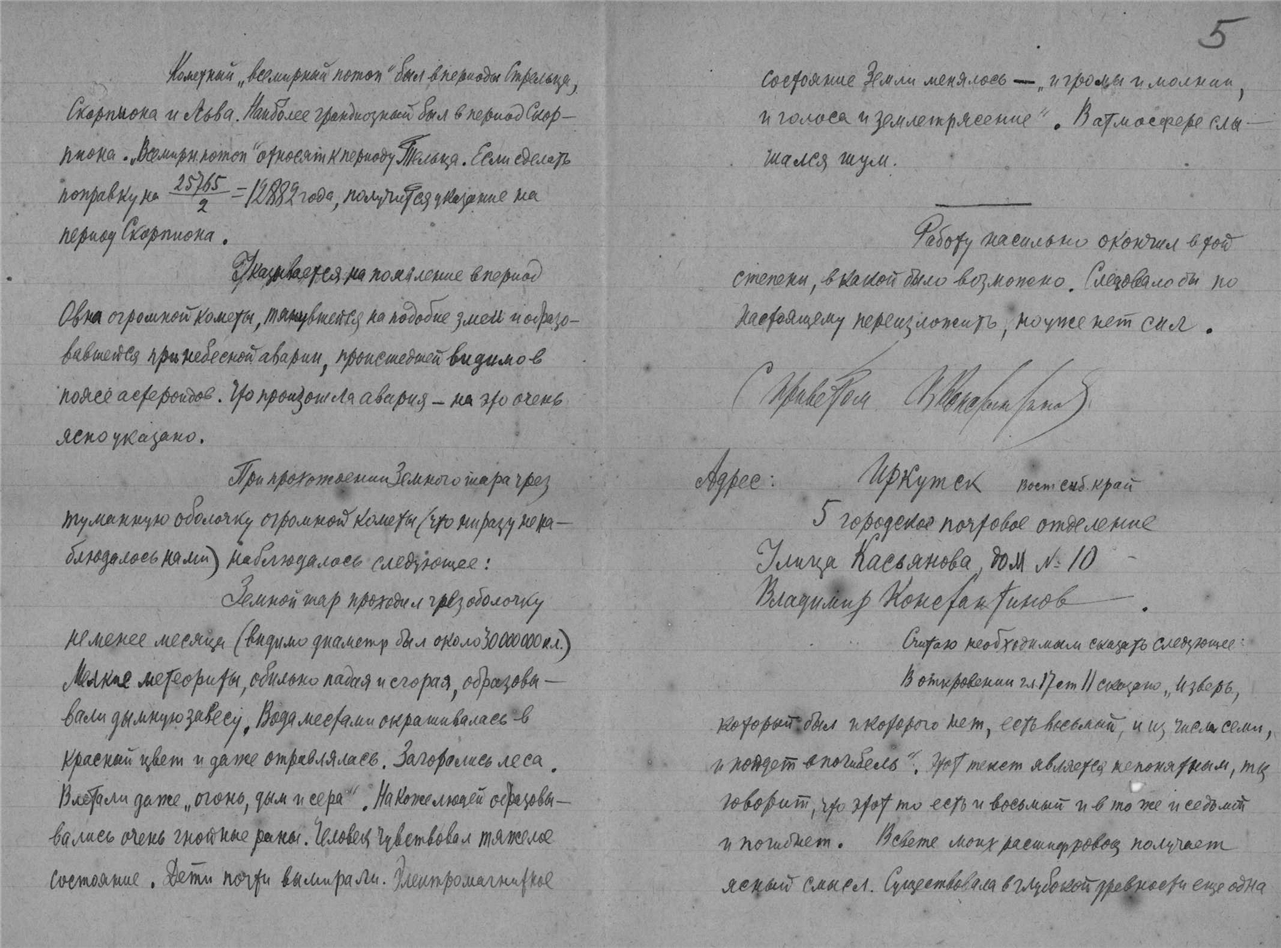 Кометный „всемирный потоп“ был в периоды Стрельца,
Скорпиона и Льва. Наиболее грандиозный был в период Скор-
пиона. „Всемирн потоп“ относят к периоду Тельца. Если сделать
поправку на 25765/2 = 12882 года, получится указание на
период Скорпиона.
Указывается на появление в период
Овна огромной кометы, тянувшейся на подобие змеи и образо-
вавшейся при небесной аварии, происшедшей видимо в
поясе астероидов. Что произошла авария – на это очень
ясно указано.
При прохождении Земного шара чрез
туманную оболочку огромной кометы (что ни разу не на-
блюдалось нами) наблюдалось следующее:
Земной шар проходил чрез оболочку
не менее месяца (видимо диаметр был около 30000000 кл.)
Мелкие метеориты, обильно падая и сгорая, образовы-
вали дымную завесу. Вода местами окрашивалась в
красный цвет и даже отравлялась. Загорались леса.
Влетали даже „огонь, дым и сера“. На коже людей образовы-
вались очень гнойные раны. Человек чувствовал тяжелое
состояние. Дети почти вымирали. Электромагнитное
5
состояние Земли менялось — „и громы и молнии,
и голоса и землетрясение“. В атмосфере слы-
шался шум.
Работу насильно окончил в той
степени, в какой было возможно. Следовало бы по
настоящему переизложить, но уже нет сил.
С приветом В Константинов
Адрес: Иркутск Вост сиб. край
5 городское почтовое отделение
Улица Касьянова, дом № 10
Владимир Константинов.
Считаю необходимым сказать следующее:
В откровении гл 17 ст 11 сказано „и зверь,
который был и которого нет, есть восьмый, и из числа семи,
и пойдет в погибель“. Этот текст является непонятным, тк
говорит, что этот то есть и восьмый и в то же и седьмой
и погибнет. В свете моих расшифровок получает
ясный смысл. Существовала в глубокой древности еще одна